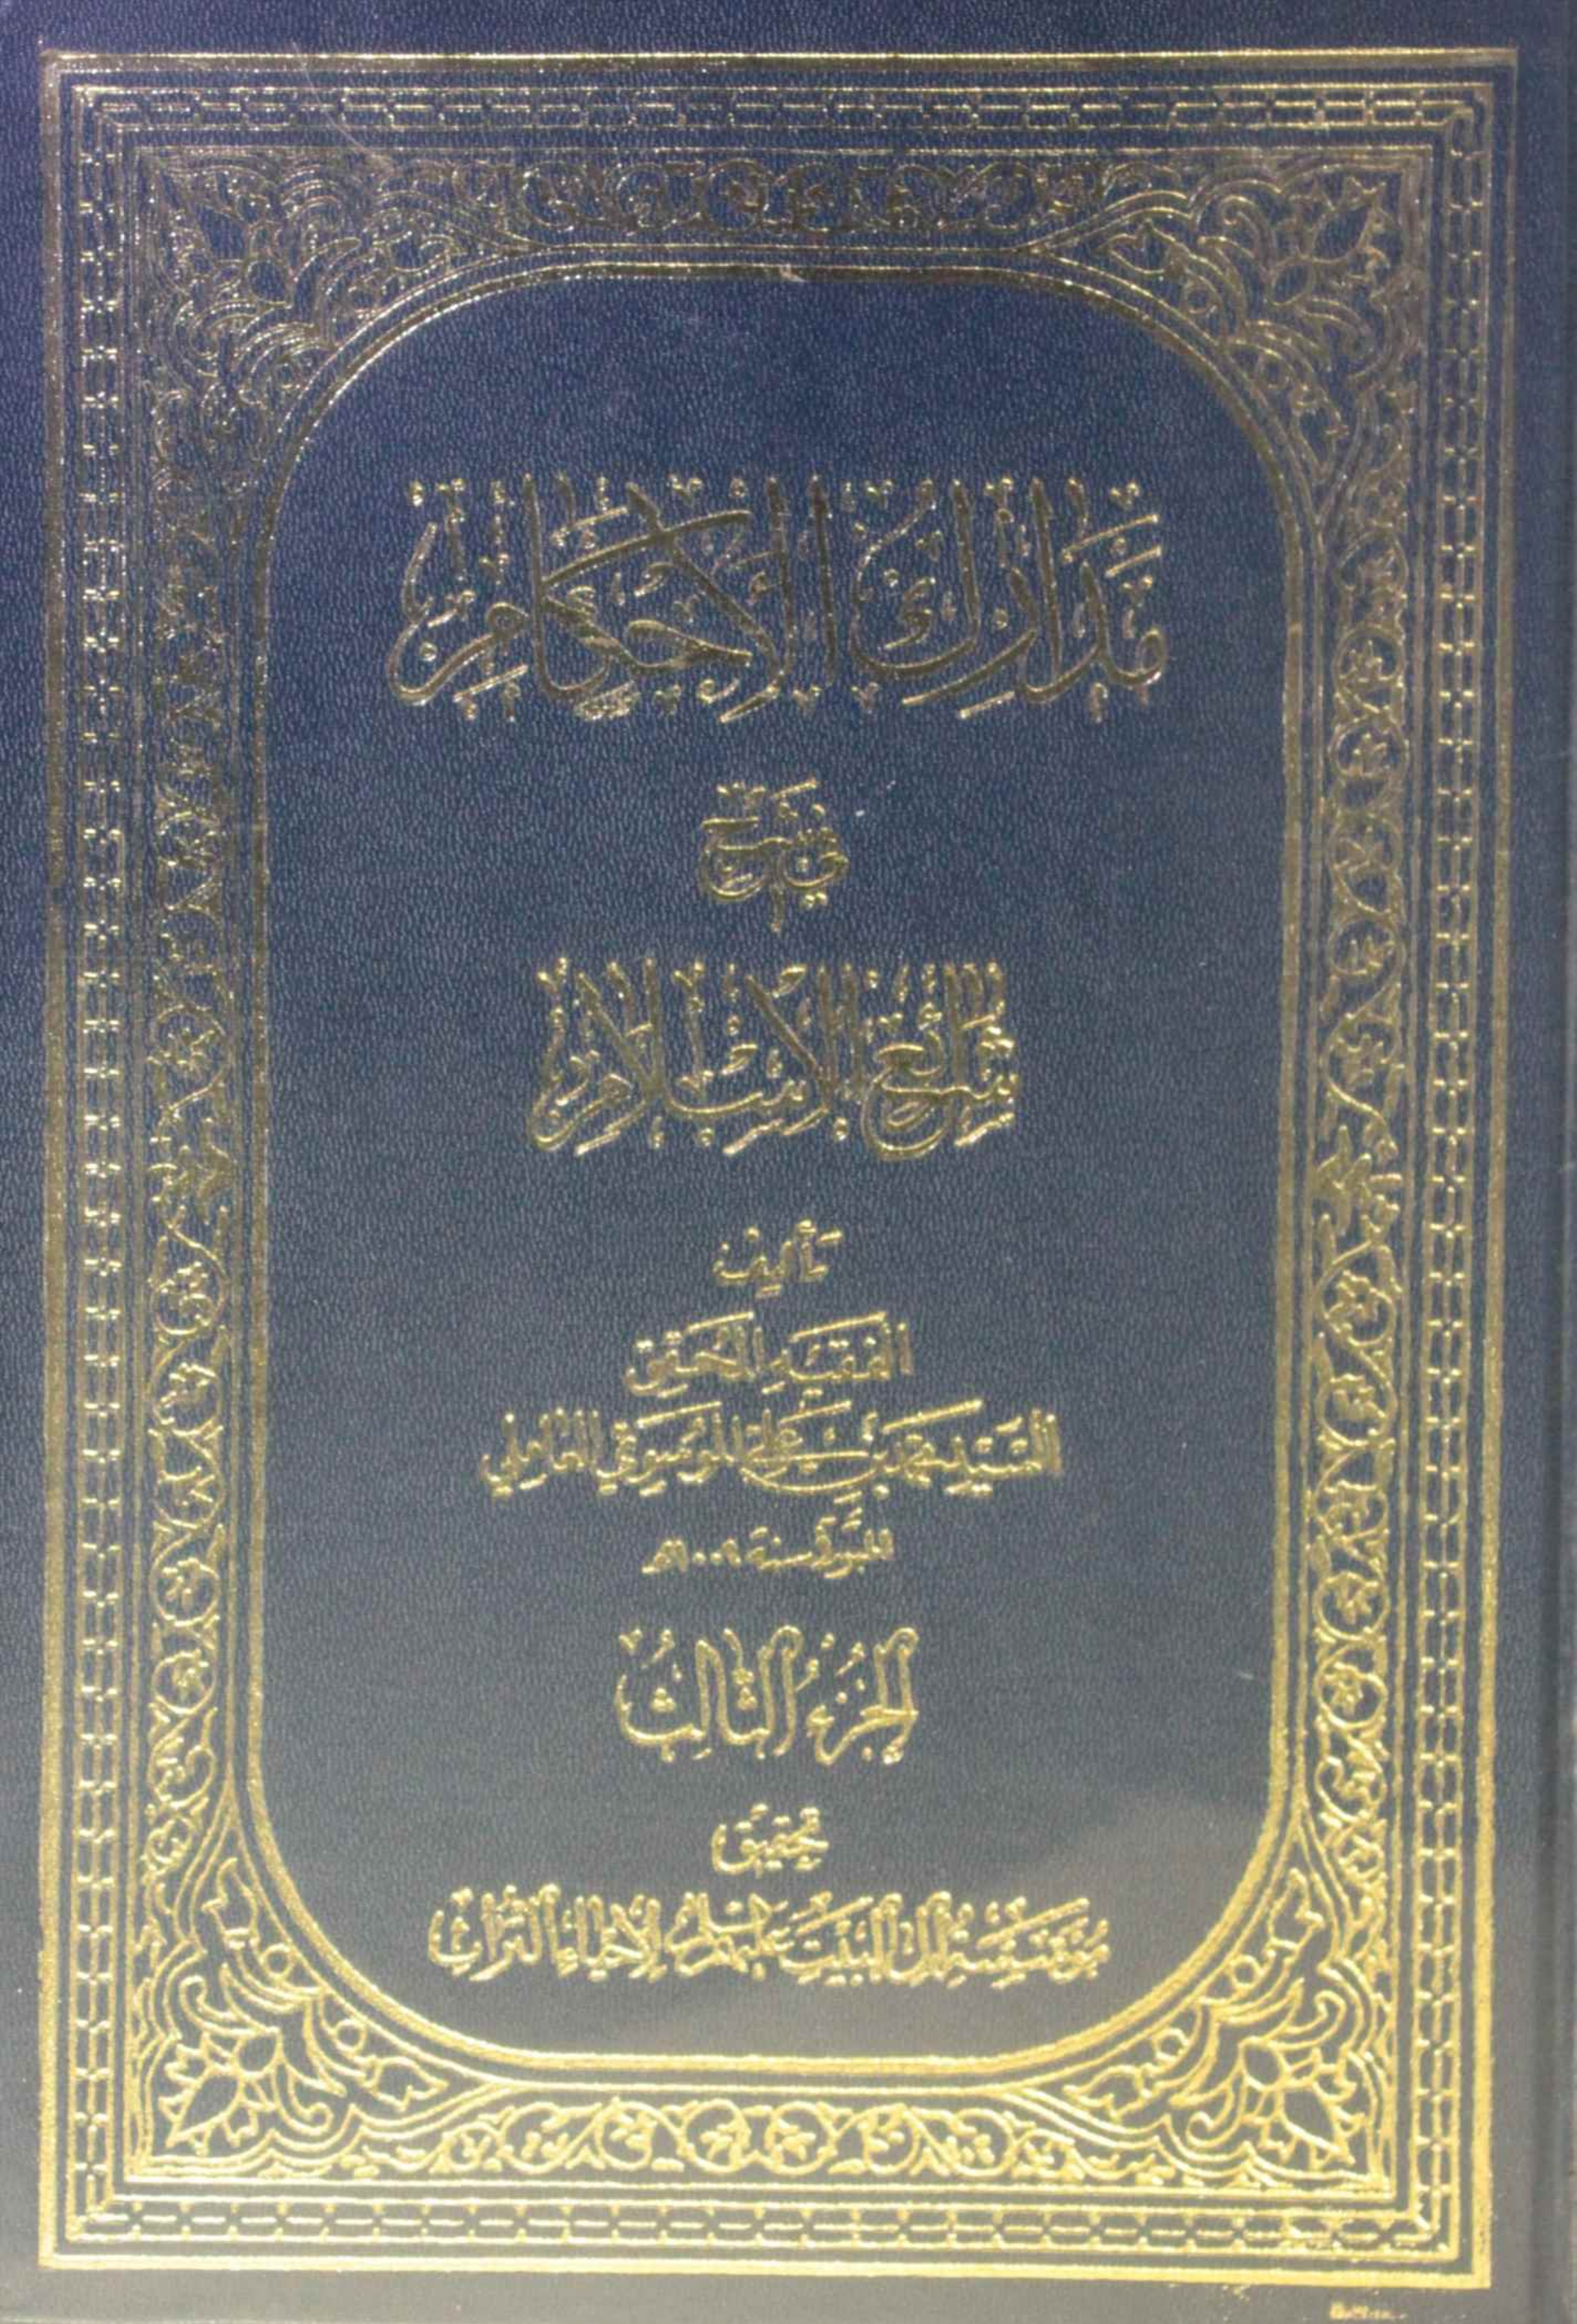 مدارك الأحكام
في شرح
شرائع الإسلام
تأليف
الفقيه المحقق
السيد محمد بن علي الموسوي العاملي
المتوفى سنة ١٠٠٩هـ
الجزء الثالث
تحقيق
مؤسسة آل البيت عليهم السلام لإحياء التراث